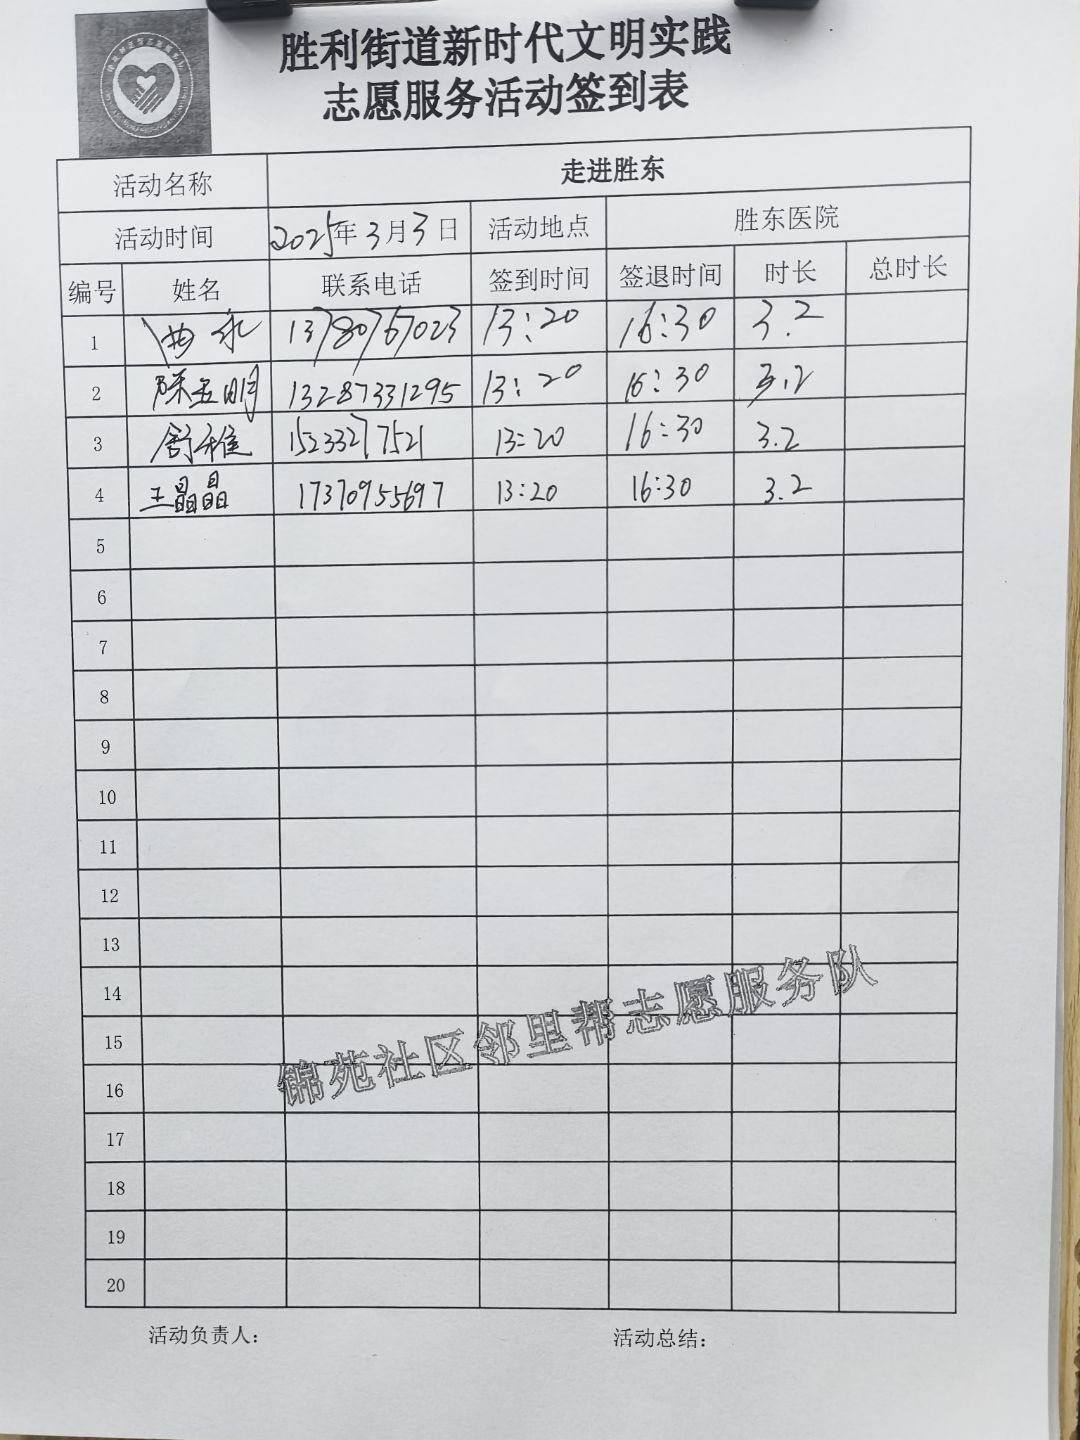 胜利街道新时代文明实践
志愿服务活动签到表
活动名称 走进胜东
活动时间 2025年3月3日 活动地点 胜东医院
编号 姓名 联系电话 签到时间 签退时间 时长 总时长
1 曲永 13780767023 13:20 16:30 3.2
2 陈玉明 13287331295 13:20 16:30 3.2
3 舒雅 15233277521 13:20 16:30 3.2
4 王晶晶 17370955697 13:20 16:30 3.2
5
6
7
8
9
10
11
12
13
14
15
16
17
18
19
20
锦苑社区邻里帮志愿服务队
活动负责人： 活动总结：